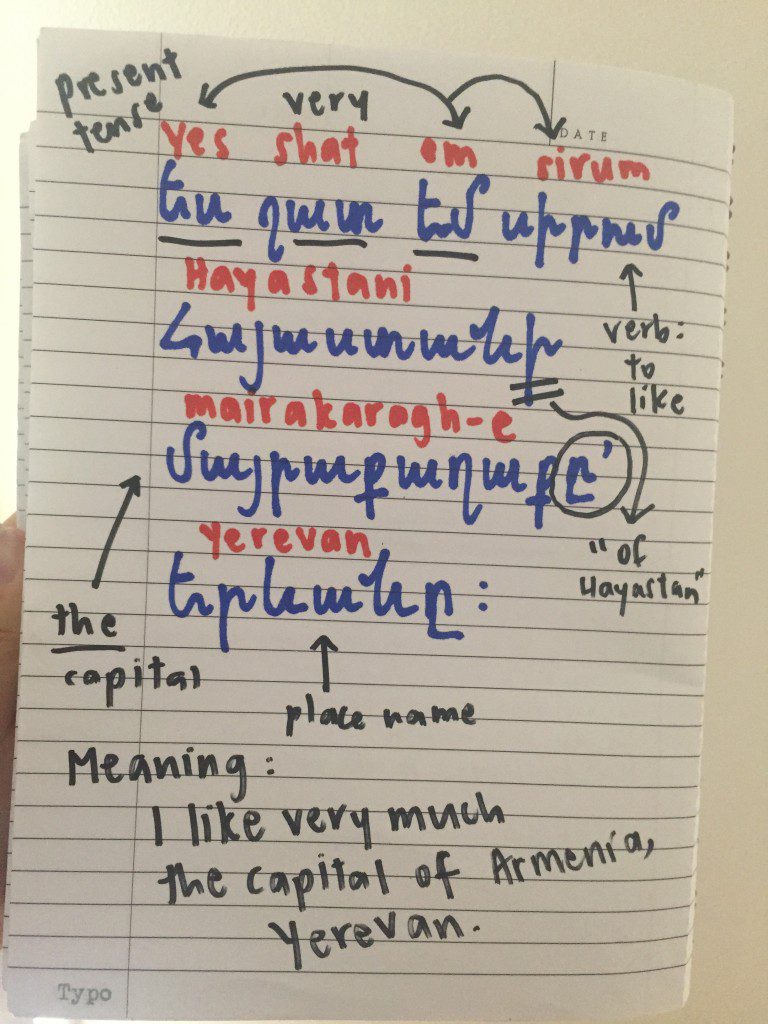 present
tense
very
DATE
yes shat em sirum
Ես շատ եմ սիրում
Hayastani
Հայաստանի
verb:
to
like
mairakaragh-e
մայրաքաղաքը՝
yerevan
Երևանը:
"of
Hayastan"
the
capital
place name
Meaning:
I like very much
the capital of Armenia,
Yerevan.
Typo